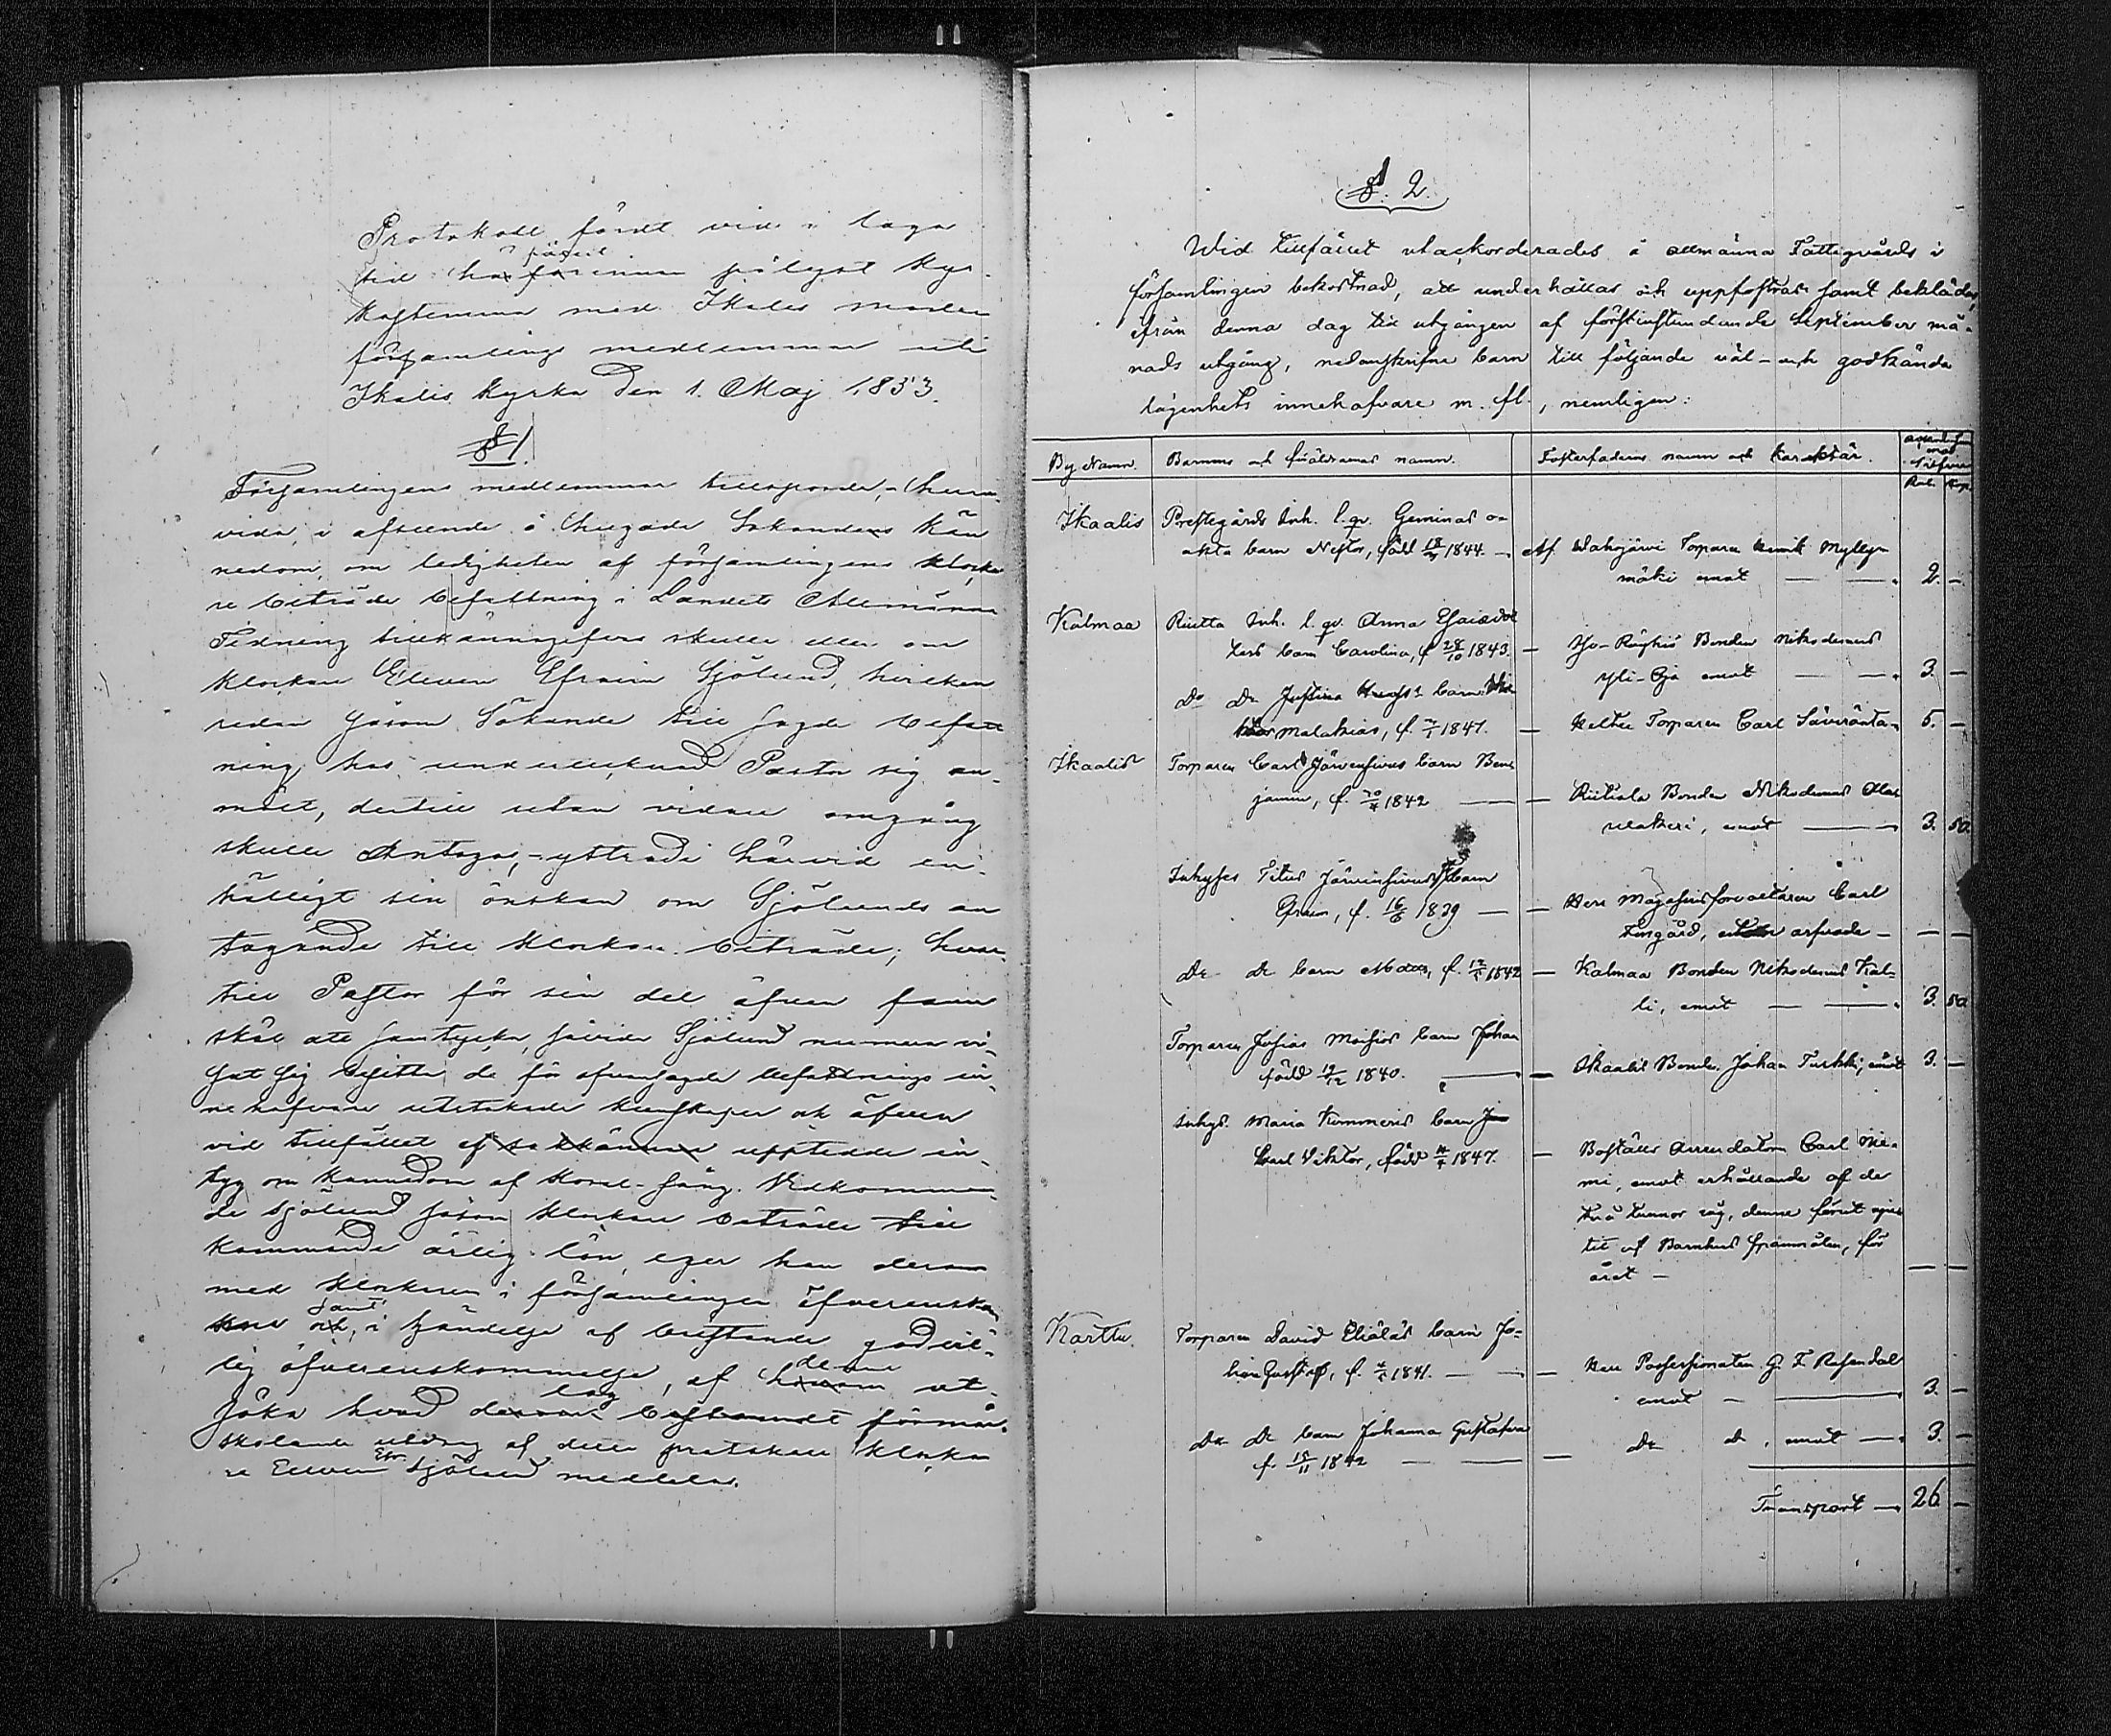 Protokoll fördt vid i laga
tid påjest
ha förinnan pålyst Kyr-
kostemma med Ikalis moder
församlings medlemmar uti
Ikalis kyrka den 1. Maj 1853.
§ 1.
Församlingens medlemmar tillsporde, - huru-
vida, i afseende å Sökandens kän
nedom, om ledigheten af församlingens klocka-
re beträde befattning i Landets Allmänna
Tidning tillkännagifvas skulle eller om
klockare Eleven Efraim Sjölund, hvilken
redan såsom Sökande till sagde befatt
ning hos undertecknad Pastor sig an-
mält, dertill utan vidare omgång
skulle Antagas, - yttrade härvid en-
hälligt sin önskan om Sjölunds an
tagande till klockare beträde; hvar-
till Pastor för sin del äfven fann
skäl att samtycka, såvida Sjölund numera vi-
sat sig besitta de för ofvansagde befattnings in-
nehafvare utstakade kunskaper och äfven
vid tillfället uppteddde in-
tyg om kännedom af Koral-sång. Vidkomman-
de Sjölund såsom klockare beträde till
kommande årlig lön, eger han derom
med klockaren i församlingen öfverenskom
samt
och, i händelse af bristande godvil-
lig öfverenskommelse, af denne ut-
söka hvad lag bestämdt förmår.
skolande utdrag af detta protokoll klocka
re Eleven Efr. Sjölund meddelas.
§. 2.
Wid tillfället utackorderades å allmänna Fattigvårds i
församlingen bekostnad, att underhållas och uppfostras samt beklädas,
ifrån denna dag till utgången af förstinstundande September må-
nads utgång, nedanskrifne barn till följande väl- och godkände
lägenhets innehafvare m. fl., nemligen:
By Namn. Barnens och föräldrarnes namn. Fosterfaderns namn och karaktär.
Rub. Kop.
Ikaalis Prestegårds Inh. l. qv. Geminas o-
äkta barn Nestor, född 1844. — Af Wahojärvi Torparen Henrik Mylly-
mäki emot — — 2. —
Kalmaa Riitta Inh. l. qv. Anna Esaiædot
ters barn Carolina, f. 28/10 1843. — Yo-Röyhiö Bonden Nikodemus
Yli-Eja emot — — 3. —
Do Do Justina barn
Malakias, f. 1847. — Keltu Torparen Carl Säviränta 5. —
Ikaalis Torparen Carl Järvensivus barn Ben-
jamin, f. 20/4 1842 — Riitiala Bonden Nikodemus
emot — 3. 50.
Inhyses Titus Järvensivus barn
Efraim, f. 16/6 1839. — Herr Magasinsförvaltaren Carl
Lungård, arfvode — — —
Do Do barn f. 1842 — Kalmaa Bonden Nikodemus Kal-
li, emot — — 3. 50.
Torparen Josias Moisios barn Johan
född 19/12 1840. — Ikaalis Bonden Johan Turkki, emot 3. —
Inhys. Maria Kommeris barn
Carl Viktor, född 1847. — Boställs Arrendatorn Carl Nie-
mi, emot erhållande af de
två tunnor råg, denne förut njuu
tit af Barnhus spannmålen, för
året — — —
Karttu. Torparen David Eliäläs barn Jo-
han Gustaf, f. 1841. — Herr Possessionaten G. F. Rosendal
emot — 3. —
Do Do barn Johanna Gustafva
f. 15/11 1842 — Do Do, emot — 3. —
Transport — 26 —